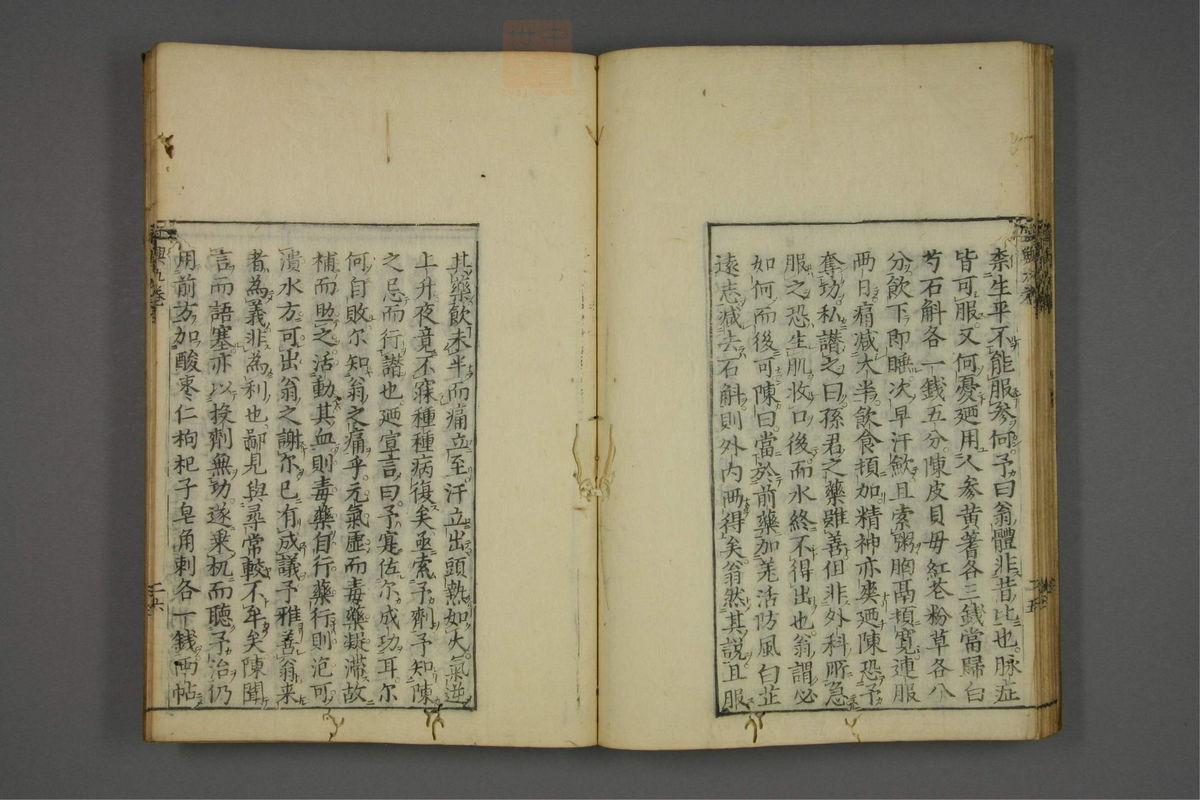 柰生平不能服參何予曰翁體非昔比也脉症
皆可服又何憂廼用人參黄蓍各三錢當歸白
芍石斛各一錢五分陳皮貝母紅花粉草各八
分飲下即睡次早汗歛且索粥胸膈頓寬連服
两日痛减大半飲食頓加精神亦爽廼陳恐予
奪功私譛之曰孫君之藥雖善但非外科所急
服之恐生肌收口後而水終不得出也翁謂必
如何而後可陳曰當於前藥加羌活防風白芷
遠志减去石斛則外内两得矣翁然其說且服
其藥飲未半而痛立至汗立出頭熱如火氣逆
上升夜竟不寐種種病復矣亟索予劑予知陳
之忌而行譛也廼宣言曰予寔佐尔成功耳尔
何自敗尔知翁之痛乎元氣虛而毒藥凝滯故
補而助之活動其血則毒藥自行藥行則泡可
潰水方可出翁之謝尔已有成議予雅善翁来
者為義非為利也鄙見與尋常較不牟矣陳聞
言而語塞亦以投劑無功遂乗机而聽予治仍
用前方加酸棗仁枸杞子皂角刺各一錢两帖
二六